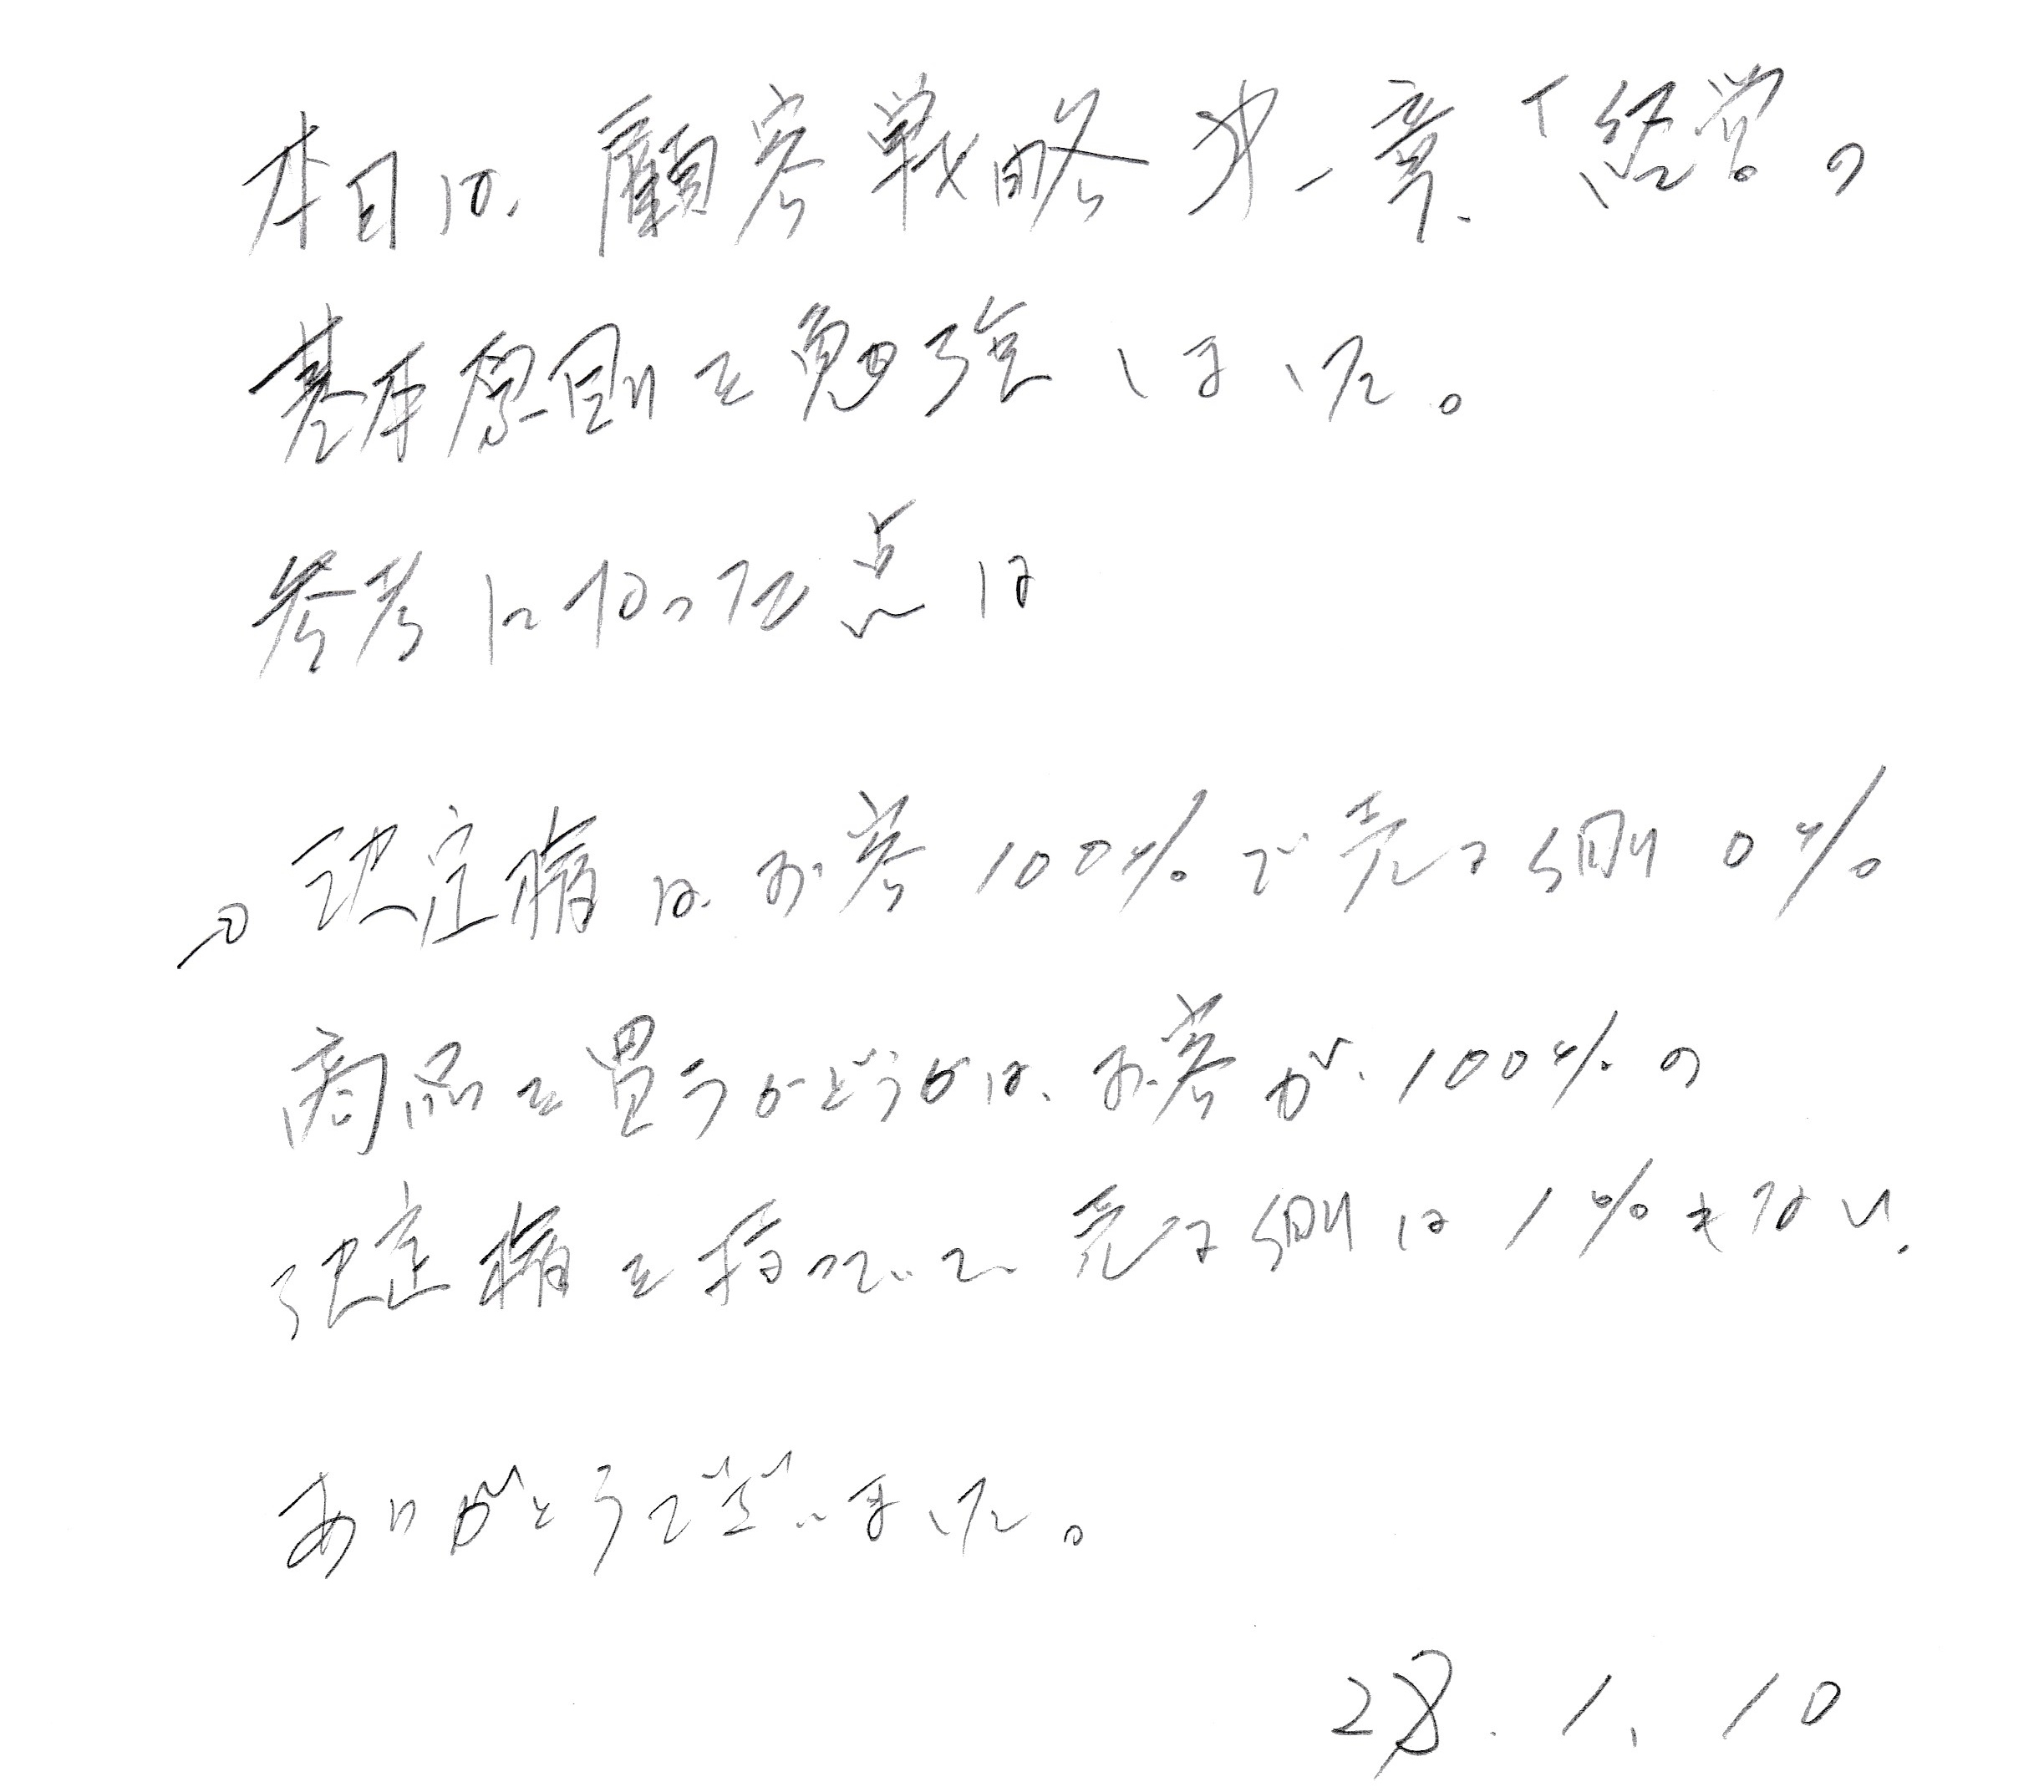 本日は、顧客戦略才一章、「経営の
基本原則を勉強しました。
参考になった点は
。決定権は、お客100%で売る側0%
商品を買うかどうかは、お客が、100%の
決定権を持っていて、売る側は1%もない、
ありがとうございました。
28.1.10